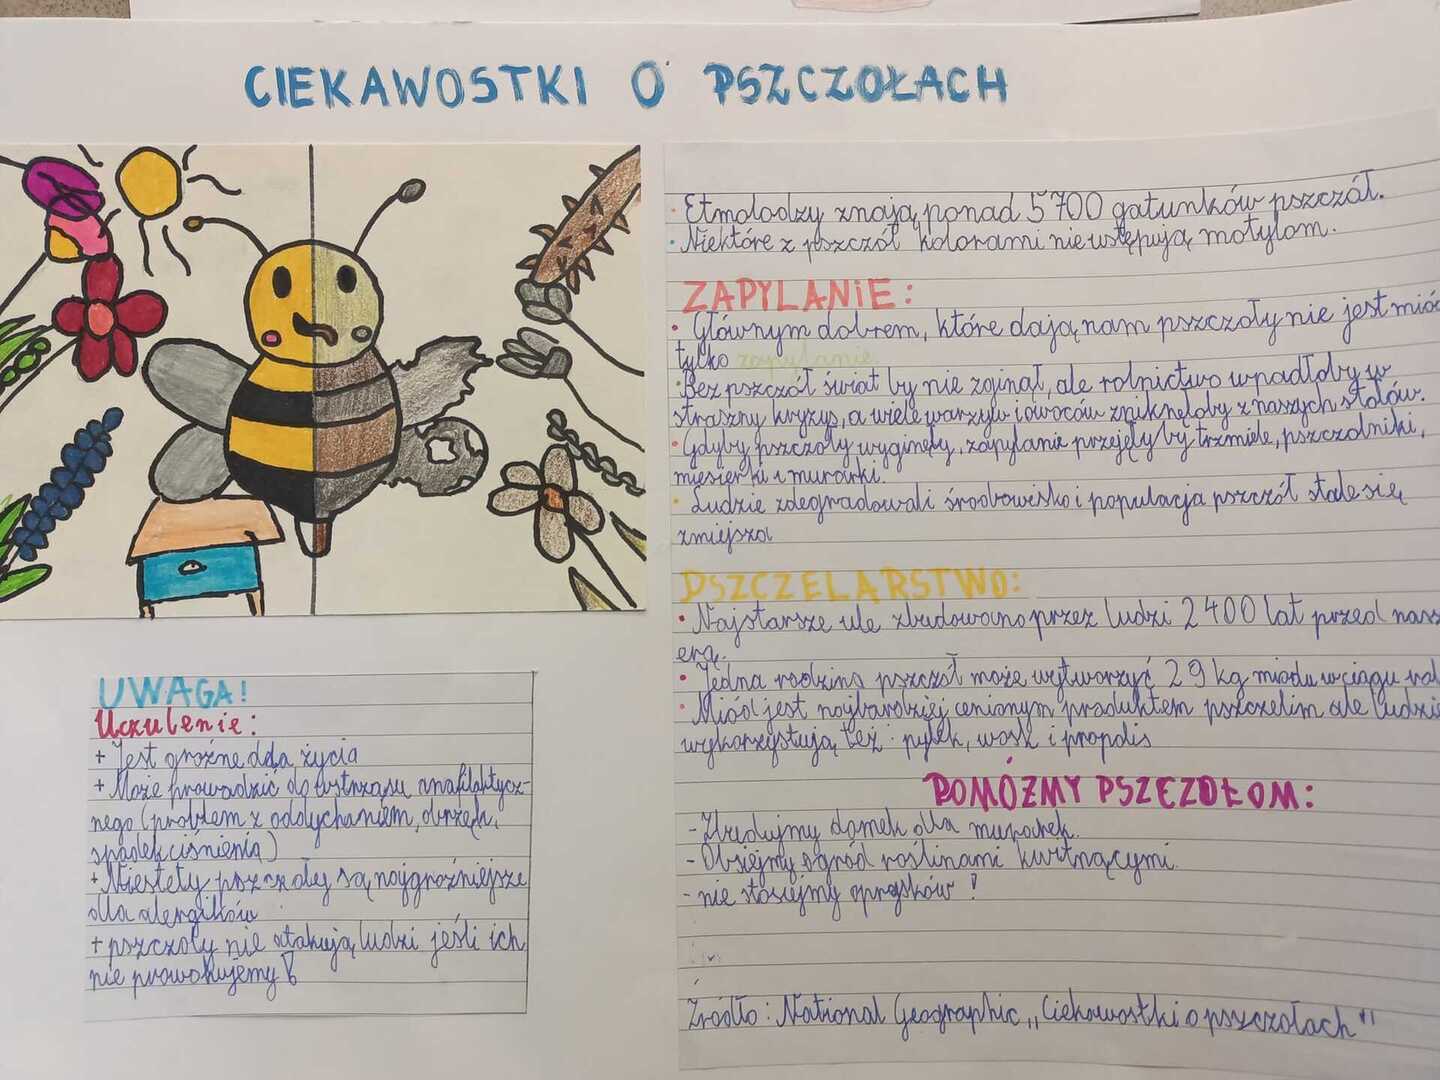 CIEKAWOSTKI O PSZCZOŁACH
• Etmolodzy znają ponad 5 700 gatunków pszczół.
• Niektóre z pszczół kolorami nie ustępują motylom.
ZAPYLANIE:
• Głównym dobrem, które dają nam pszczoły nie jest mió
tylko zapylanie.
• Bez pszczół świat by nie zginął, ale rolnictwo wpadłoby w
straszny kryzys, a wiele warzyw i owoców zniknęłoby z naszych stołów.
• Gdyby pszczoły wyginęły, zapylanie przejęły by trzmiele, pszczolniki,
miesierki i murarki.
• Ludzie zdegradowali środowisko i populacja pszczół stale się
zmiejsza
PSZCZELARSTWO:
• Najstarsze ule zbudowano przez ludzi 2 400 lat przed nasz
erą.
• Jedna rodzina pszczół może wytworzyć 29 kg miodu w ciągu
• Miód jest najbardziej cenionym produktem pszczelim ale ludzie
wykorzystują też: pyłek, wosk i propolis
POMÓŻMY PSZCZOŁOM:
- Zbudujmy domek dla murarek.
- Obsiejmy ogród roślinami kwitnącymi.
- nie stosujmy oprysków!
Źródło: National Geographic „Ciekawostki o pszczołach"
UWAGA!
Uczulenie:
+ Jest groźne dla życia
+ Może prowadzić do wstrząsu anafilaktycz-
nego (problem z oddychaniem, obrzęk,
spadek ciśnienia)
+ Niestety pszczoły są najgroźniejsze
dla alergików
+ pszczoły nie atakują ludzi jeśli ich
nie prowokujemy!